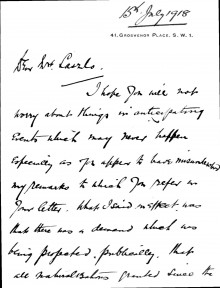 15th July 1918
41, GROSVENOR PLACE, S.W.1.
Dear Mrs Laszlo.
I hope you will not
worry about things in anticipating
events which may never happen
especially as you appear to have misunderstood
my remarks to which you refer in
your letter. What I said in effect was
that there was a demand which was
being propagated, publically, that
all naturalisations granted since the